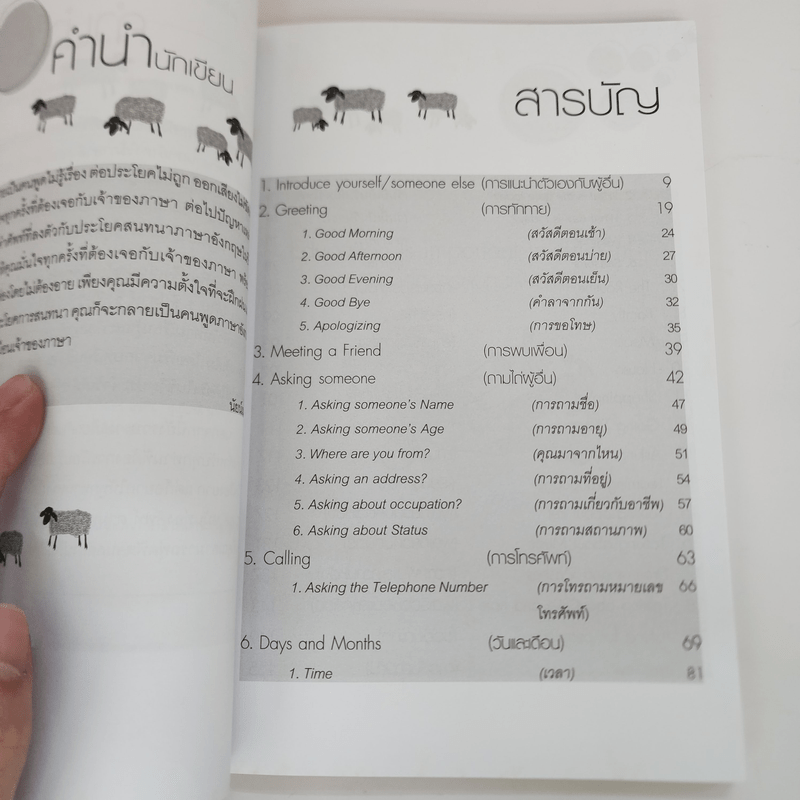 คำนำนักเขียน
เป็นคนพูดไม่รู้เรื่อง ต่อประโยคไม่ถูก ออกเสียง
ทุกครั้งที่ต้องเจอกับเจ้าของภาษา ต่อไปปัญหา
ศัพท์ที่ลงตัวกับประโยคสนทนาภาษาอังกฤษ
คุณมั่นใจทุกครั้งที่ต้องเจอกับเจ้าของภาษา
โดยไม่ต้องอาย เพียงคุณมีความตั้งใจที่จะ
ประโยคการสนทนา คุณก็จะกลายเป็นคนพูดภาษา
เจ้าของภาษา
สารบัญ
1. Introduce yourself/someone else (การแนะนำตัวเองกับผู้อื่น) 9
2. Greeting (การทักทาย) 19
1. Good Morning (สวัสดีตอนเช้า) 24
2. Good Afternoon (สวัสดีตอนบ่าย) 27
3. Good Evening (สวัสดีตอนเย็น) 30
4. Good Bye (คำลาจากกัน) 32
5. Apologizing (การขอโทษ) 35
3. Meeting a Friend (การพบเพื่อน) 39
4. Asking someone (ถามไถ่ผู้อื่น) 42
1. Asking someone's Name (การถามชื่อ) 47
2. Asking someone's Age (การถามอายุ) 49
3. Where are you from? (คุณมาจากไหน) 51
4. Asking an address? (การถามที่อยู่) 54
5. Asking about occupation? (การถามเกี่ยวกับอาชีพ) 57
6. Asking about Status (การถามสถานภาพ) 60
5. Calling (การโทรศัพท์) 63
1. Asking the Telephone Number (การโทรถามหมายเลข 66
โทรศัพท์)
6. Days and Months (วันและเดือน) 69
1. Time (เวลา) 81